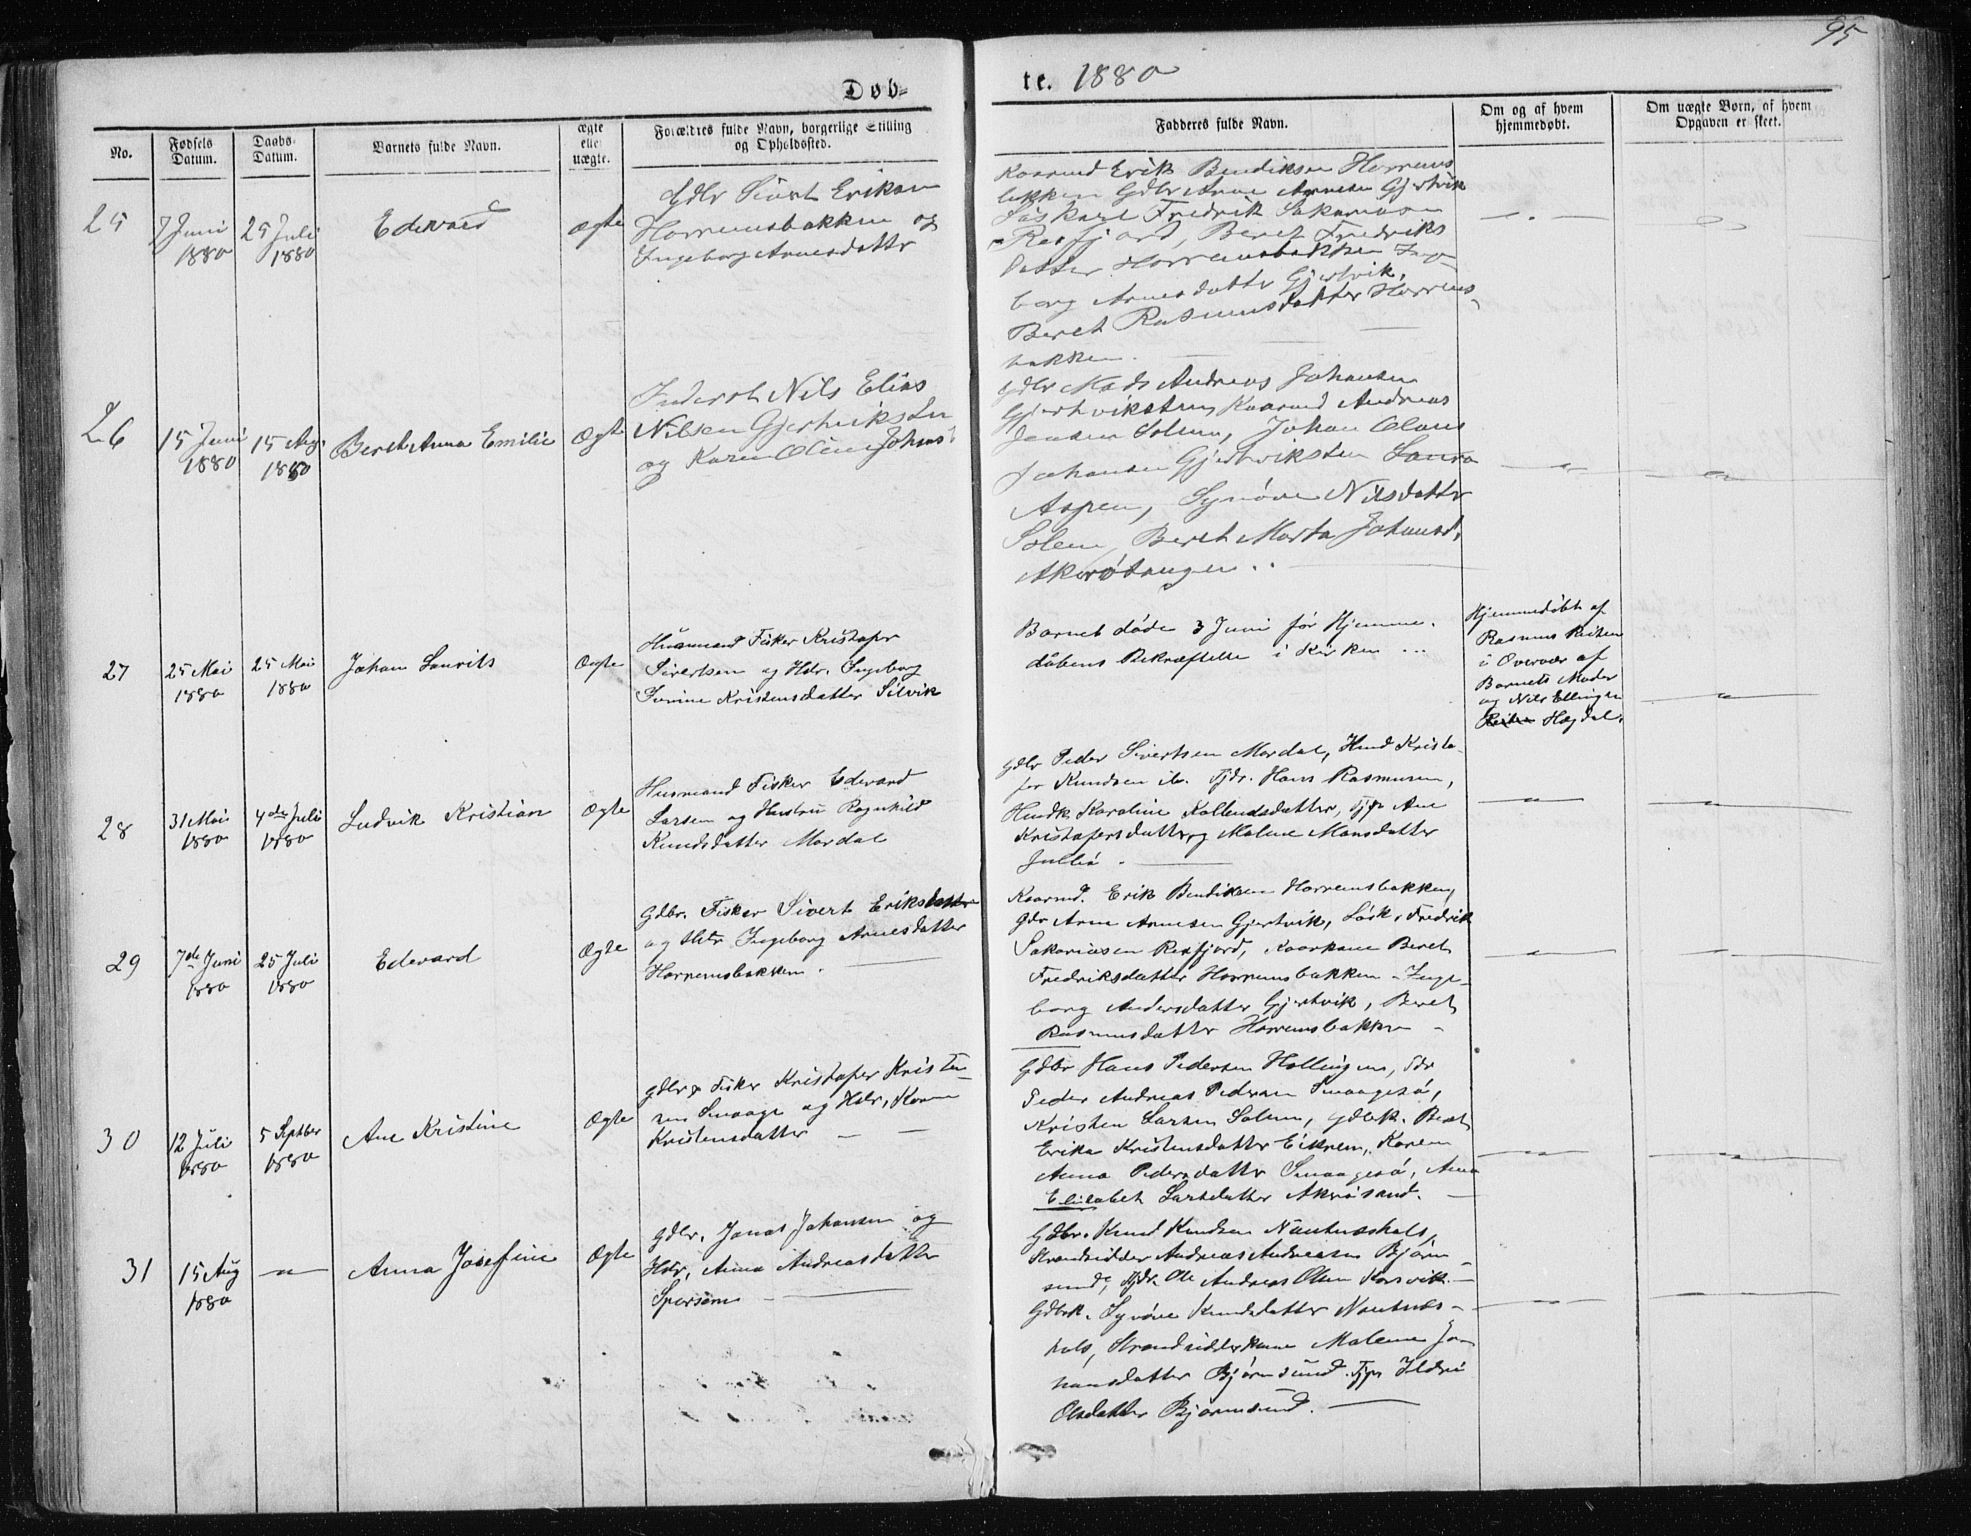 95
Døb-
te. 1880
No.
Fødsels
Datum.
Daabs-
Datum.
Barnets fulde Navn.
ægte
eller
uægte.
Forældres fulde Navn, borgerlige Stilling
og Opholdssted.
Fadderes fulde Navn.
Om og af hvem
hjemmedøbt.
Om uægte Børn, af hvem
Opgaven er skeet.
25
7 Juni
1880
25 Juli
1880
Edevard
Ægte
Gdbr Sivert Eriksen
Horremsbakken og
Ingeborg Arnesdattr
Kaarmd Erik Bendiksen Horrems
bakken Gdbr Arne Arnesen Gjertvik
Løskarl Fredrik Sakariasen
Rasfjord, Beret Fredriks
datter Horremsbakken Inge
borg Arnesdatter Gjertvik,
Beret Rasmusdatter Horrems-
bakken.
26
15 Juni
1880
15 Aug.
1880
Beret Anna Emilie
Ægte
Inderst Nils Elias
Nilsen Gjertviksten
og Karen Oline Johns
Gdbr Mads Andreas Johansen
Gjertvikstrøm Kaarmd Andreas
Jensen Solem, Johan Olaus
Johansen Gjertviksten Laura
Aspen, Synøve Nilsdatter
Solem, Beret Marta Johansd.
Akerøtangen ..
27
25 Mai
1880
25 Mai
1880
Johan Laurits
Ægte
Husmand Fisker Kristofer
Sivertsen og Hstr. Ingeborg
Severine Kristensdatter Silvik
Barnet døde 3 Juni før Hjemme-
døbens Bekræftelse i Kirken ...
Hjemmedøbt af
Rasmus Reiten
i Overvær af
Barnets Moder
og Nils Ellingsen
Reiten Hagdal.
28
31 Mai
1880
4de Juli
1880
Ludvik Kristian
Ægte
Husmand Fisker Edevard
Larsen og Hustru Ragnhild
Knudsdatter Mordal
Gdbr Peder Sivertsen Mordal, Hmd Kristo-
fer Knudsen ib. Tjdr. Hans Rasmusen,
Hmdk Karoline Kollensdatter, Tjp Ane
Kristofersdatter, og Malene Monsdatter
Julbø.
29
7de Juni
1880
25 Juli
1880
Edevard
Ægte
Gdbr. Fisker Sivert Eriksdatter
og Hstr Ingeborg Arnesdatter
Horremsbakken.
Kaarmd. Erik Bendiksen Horremsbakken,
Gdr Arne Arnesen Gjertvik, Løsk. Fredrik
Sakariasen Resfjord, Kaarkone Beret
Fredriksdatter Horremsbakken - Inge-
borg Andersdatter Gjertvik, Beret
Rasmusdatter Horremsbakken -
30
12 Juli
1880
5 Septber
1880
Ane Kristine
Ægte
Gdbr & Fisker Kristofer Kristen-
sen Smaage og Hstr, Karen
Kristensdatter
Gdbr Hans Pedersen Hollingen, Gdr
Peder Andreas Pedersen Smaagesø,
Kristen Larsen Solem, Gdbk. Beret
Erika Kristensdatter Eikrem, Karen
Anna Pedersdatter Smaagesø, Anna
Elisabet Larsdatter Akerøsand.
31
15 Aug
1880
Anna Josefine
Ægte
Gdbr. Jonas Johansen og
Hstr. Anna Andreasdatter
Spersøm
Gdbr. Knud Knudsen Nautnæshals,
Strandsidder Andreas Andreasen Bjørn
sund, Tjdr. Ole Andreas Olsen Korsvik.
Gdbrk. Synøve Knudsdatter Nautnæs-
hals, Strandsidderkone Malene Jo-
hansdatter Bjørnsund. Tjp Ildri
Olsdatter Bjørnsund.